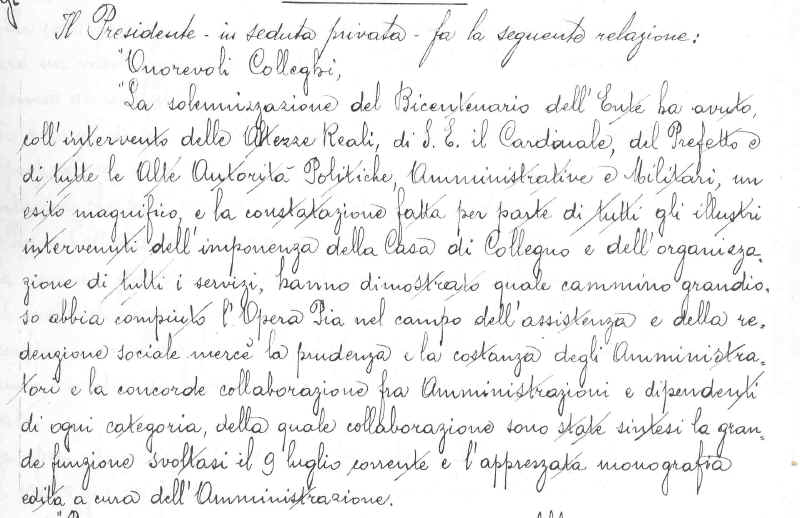 Il Presidente - in seduta privata - fa la seguente relazione:
"Onorevoli Colleghi,
"La solennizzazione del Bicentenario dell'Ente ha avuto,
coll'intervento delle Altezze Reali, di S. E. il Cardinale, del Prefetto e
di tutte le Alte Autorità Politiche, Amministrative e Militari, un
esito magnifico, e la constatazione fatta per parte di tutti gli illustri
intervenuti dell'imponenza della Casa di Collegno e dell'organizza=
zione di tutti i servizi, hanno dimostrato quale cammino grandio=
so abbia compiuto l'Opera Pia nel campo dell'assistenza e della re=
denzione sociale mercè la prudenza e la costanza degli Amministra=
tori e la concorde collaborazione fra Amministrazioni e dipendenti
di ogni categoria, della quale collaborazione sono state sintesi la gran=
de funzione svoltasi il 9 luglio corrente e l'apprezzata monografia
edita a cura dell'Amministrazione.